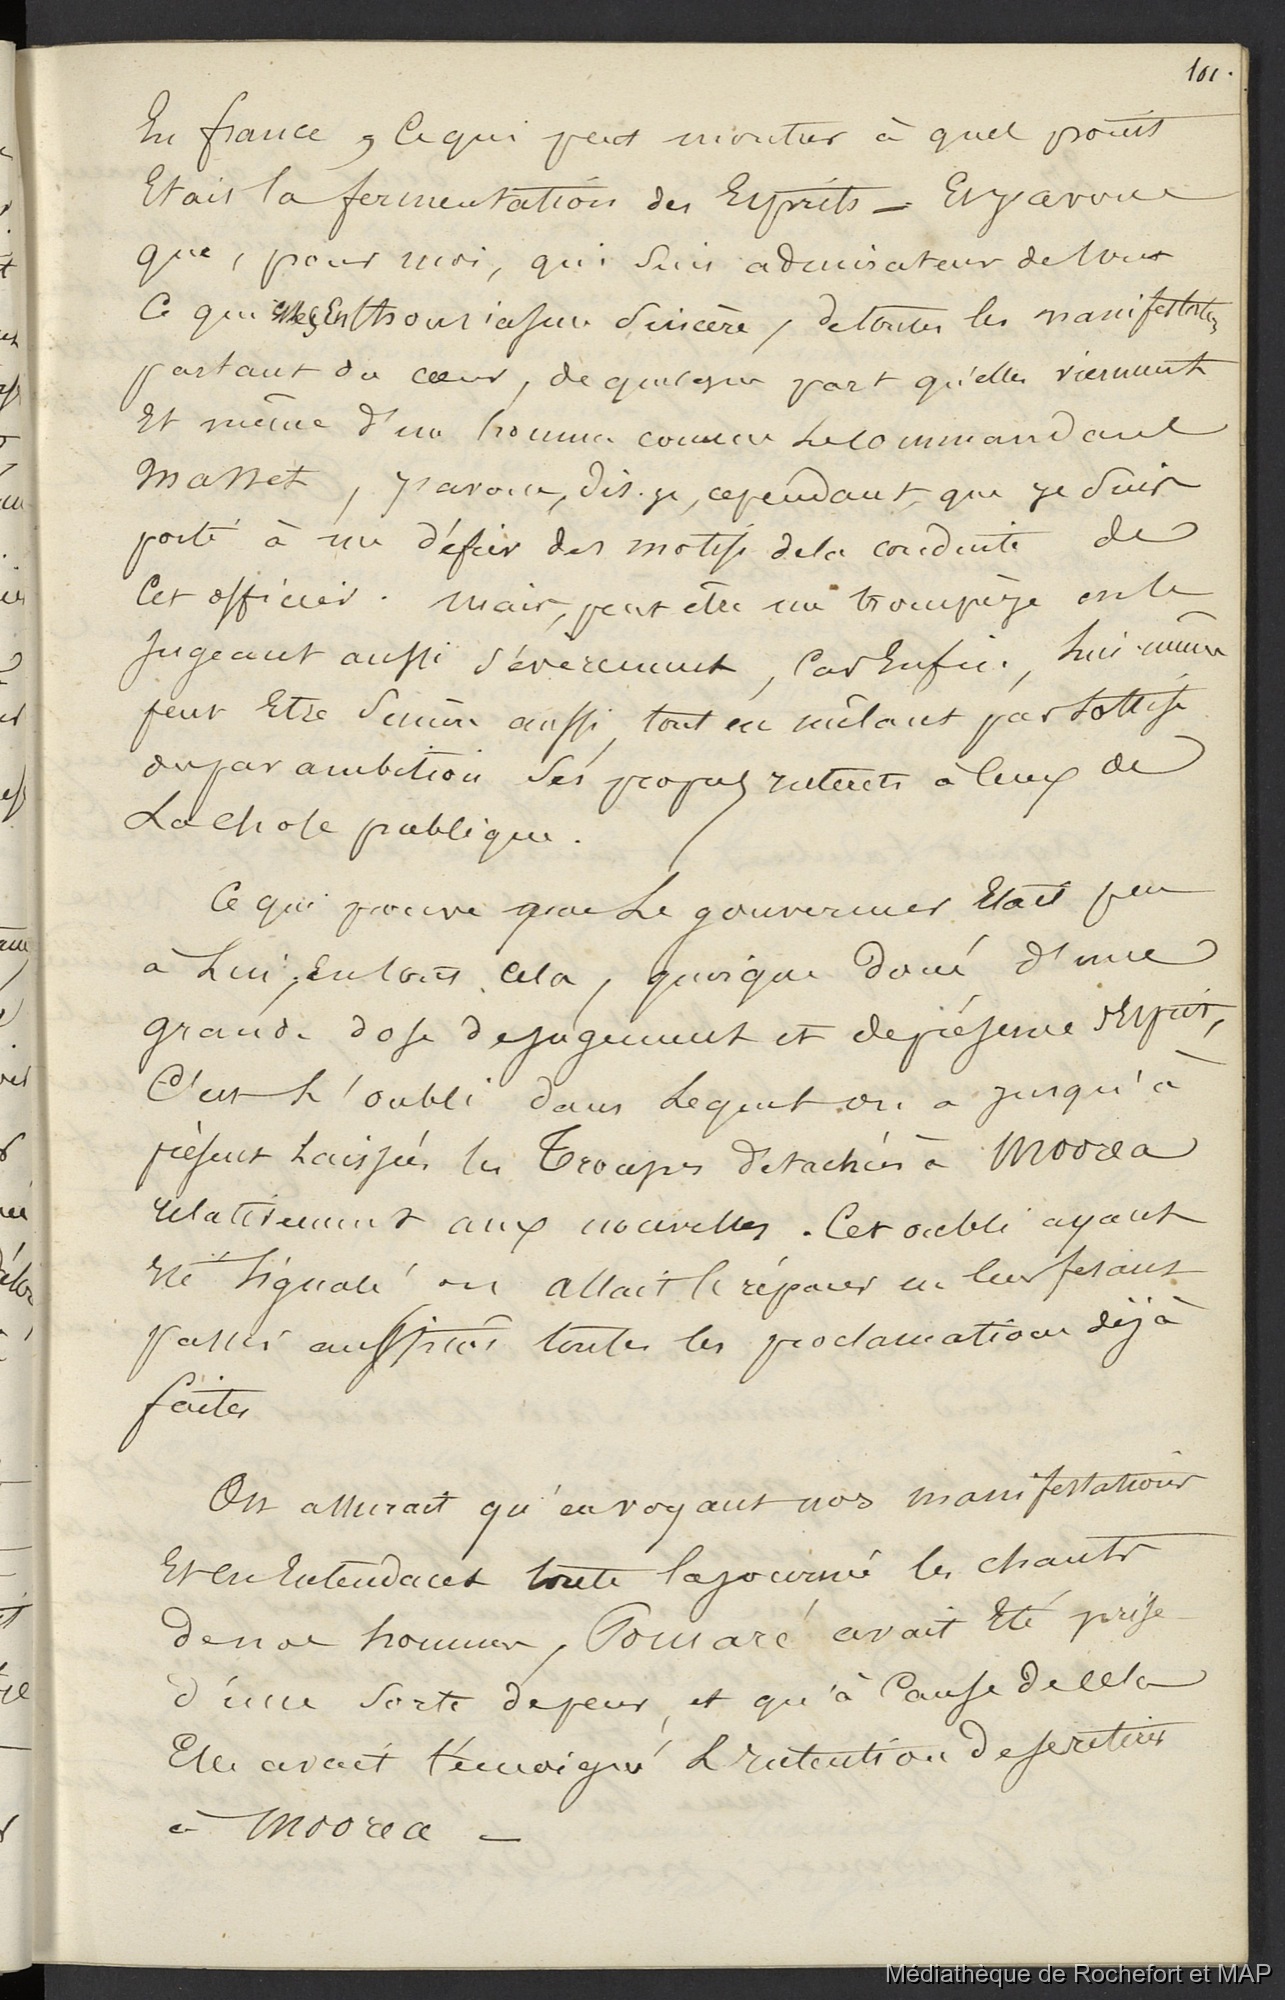 101.
En france, Ce qui peut montrer à quel point
Etait la fermentation des Esprits – Et j'avoue
que, pour moi, qui suis admirateur de tout
Ce qui Enthousiasme sincère, de toutes les manifestations
partant du cœur, de quelque part qu'elles viennent
Et même d'un homme comme Le Commandant
Masset, j'avoue, dis-je, cependant, que je suis
porté à me défier des motifs de la conduite de
Cet officier. Mais, peut être me trompè-je en le
jugeant aussi sévèrement, Car Enfin, Lui-même
peut Etre Sincère aussi, tout en mêlant par sottise
ou par ambition Ses propres intérêts à Ceux de
La chose publique.
Ce qui prouve que Le gouverneur Etait peu
à Lui, En tout Cela, quoique doué d'une
grande dose de jugement et de présence d'Esprit,
C'est L'oubli dans Lequel on a jusqu'à
présent Laissées les Troupes détachées à Moorea
relativement aux nouvelles. Cet oubli ayant
Eté Signalé on allait le réparer en leur fesant
passer aussitôt toutes les proclamations déjà
faites
On assurait qu'en voyant nos manifestations
Et En Entendant toute la journée les chants
de nos hommes, Pomaré avait Eté prise
d'une Sorte de peur, et qu'à Cause de Cela
Elle avait témoigné L'intention de se retirer
à Moorea –
Médiathèque de Rochefort et MAP